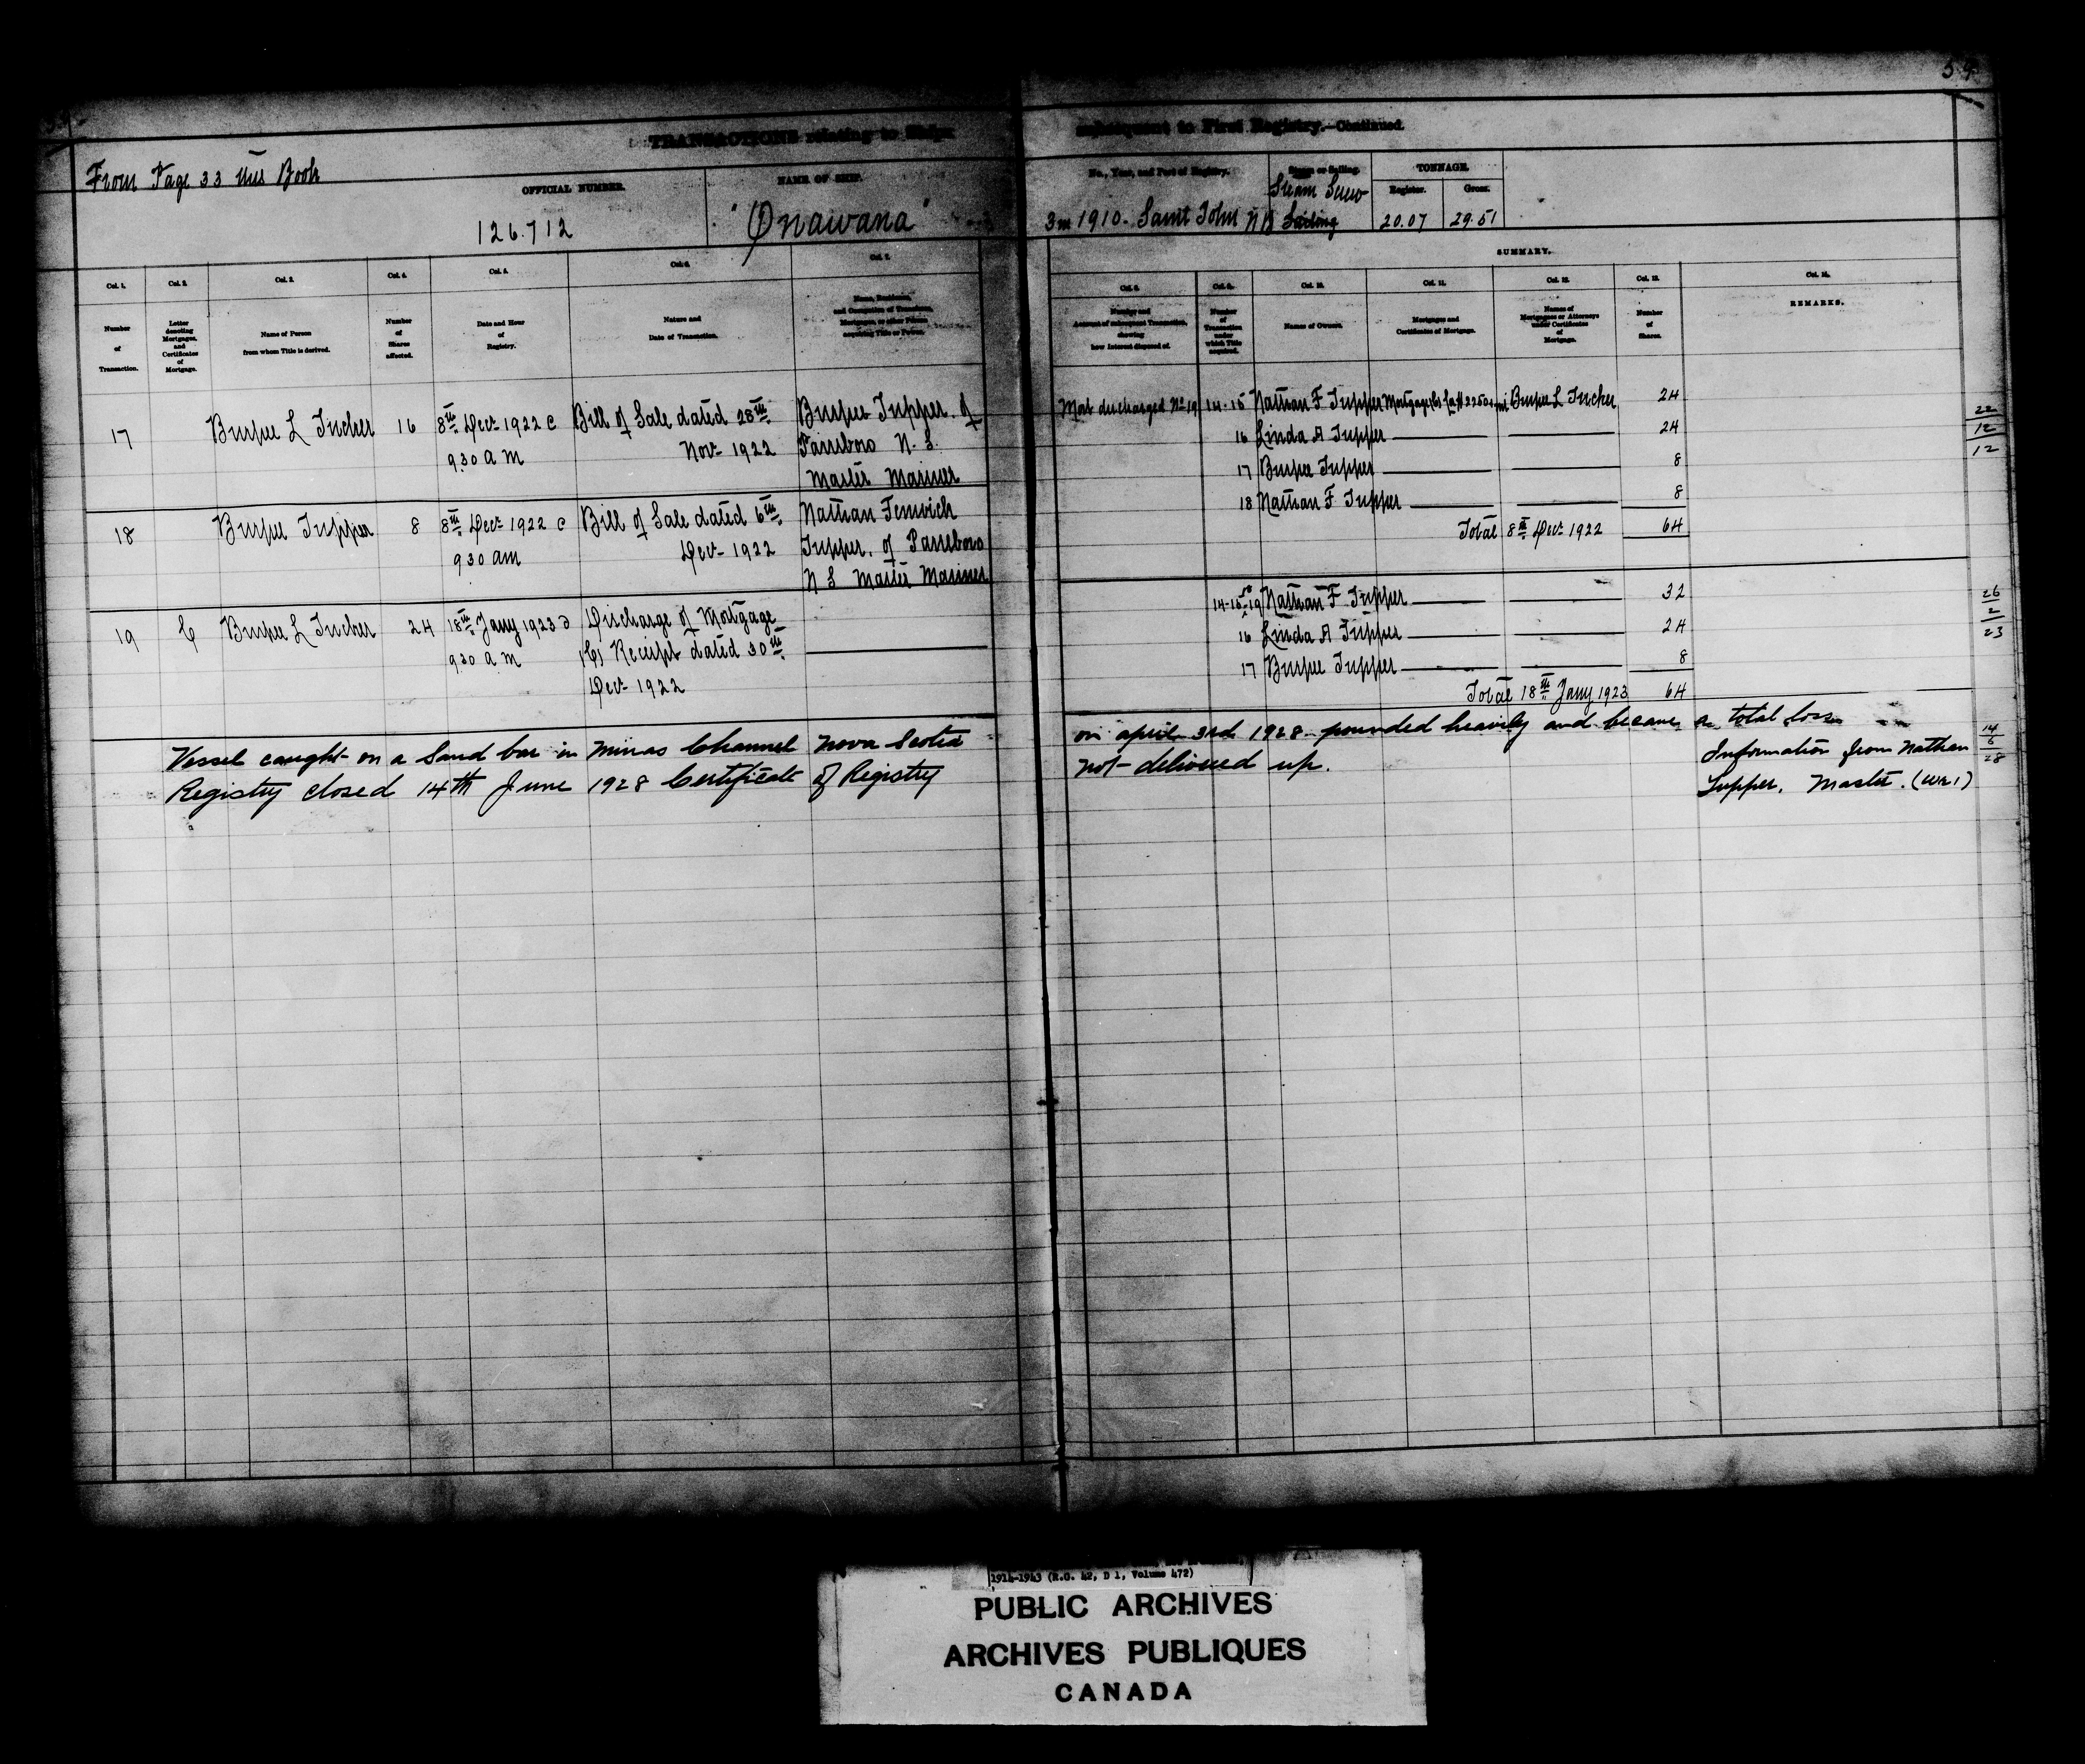 34
From Page 33 this Book
TRANSACTIONS relating to Ships
subsequent to First Registry.—Continued.
OFFICIAL NUMBER.
126.712
NAME OF SHIP.
"Onawana"
No., Year, and Port of Registry.
3 in 1910 - Saint John NB
Steam or Sailing.
Steam Screw
Sailing
TONNAGE.
Register.
Gross.
20.07
29.51
SUMMARY.
Col. 1. Col. 2. Col. 3. Col. 4. Col. 5. Col. 6. Col. 7.
Number of Transaction.
Letter denoting Mortgages, and Certificates of Mortgage.
Name of Person from whom Title is derived.
Number of Shares affected.
Date and Hour of Registry.
Nature and Date of Transaction.
Name, Residence, and Occupation of Transferee, Mortgagee, or other Person acquiring Title or Power.
Col. 8. Col. 9. Col. 10. Col. 11. Col. 12. Col. 13. Col. 14.
Number and Account of subsequent Transaction, showing how Interest disposed of.
Number of Transaction under which Title acquired.
Names of Owners.
Mortgages and Certificates of Mortgage.
Names of Mortgagees or Attorneys under Certificates of Mortgage.
Number of Shares.
REMARKS.
17 Burpee L Tucker 16 8th Decr 1922 @ Bill of Sale dated 28th Burpee Tupper. of
9.30 a m Novr 1922 Parrsboro N. S.
Master Mariner
18 Burpee Tupper 8 8th Decr 1922 @ Bill of Sale dated 6th Nathan Fenwick
9 30 am Decr 1922 Tupper. of Parrsboro
N S Master Mariner
19 C Burpee L Tucker 24 18th Jany 1923 @ Discharge of Mortgage
9.30 a m (C) Receipt dated 30th
Decr 1922
Mort discharged No 19 14-15 Nathan F Tupper Mortgage (C) Burpee L Tucker 24
16 Linda A Tupper 24
17 Burpee Tupper 8
18 Nathan F Tupper 8
Total 8th Decr 1922 64
22
12
12
14-15-19 Nathan F Tupper 32
16 Linda A Tupper 24
17 Burpee Tupper 8
Total 18th Jany 1923 64
26
2
23
Vessel caught on a Sand bar in Minas Channel Nova Scotia on april 3rd 1928 pounded heavily and became a total loss
Registry closed 14th June 1928 Certificate of Registry not delivered up.
Information from Nathan
Tupper, Master. (Wr 1)
14
6
28
1914-1943 (R.G. 42, D 1, Volume 472)
PUBLIC ARCHIVES
ARCHIVES PUBLIQUES
CANADA